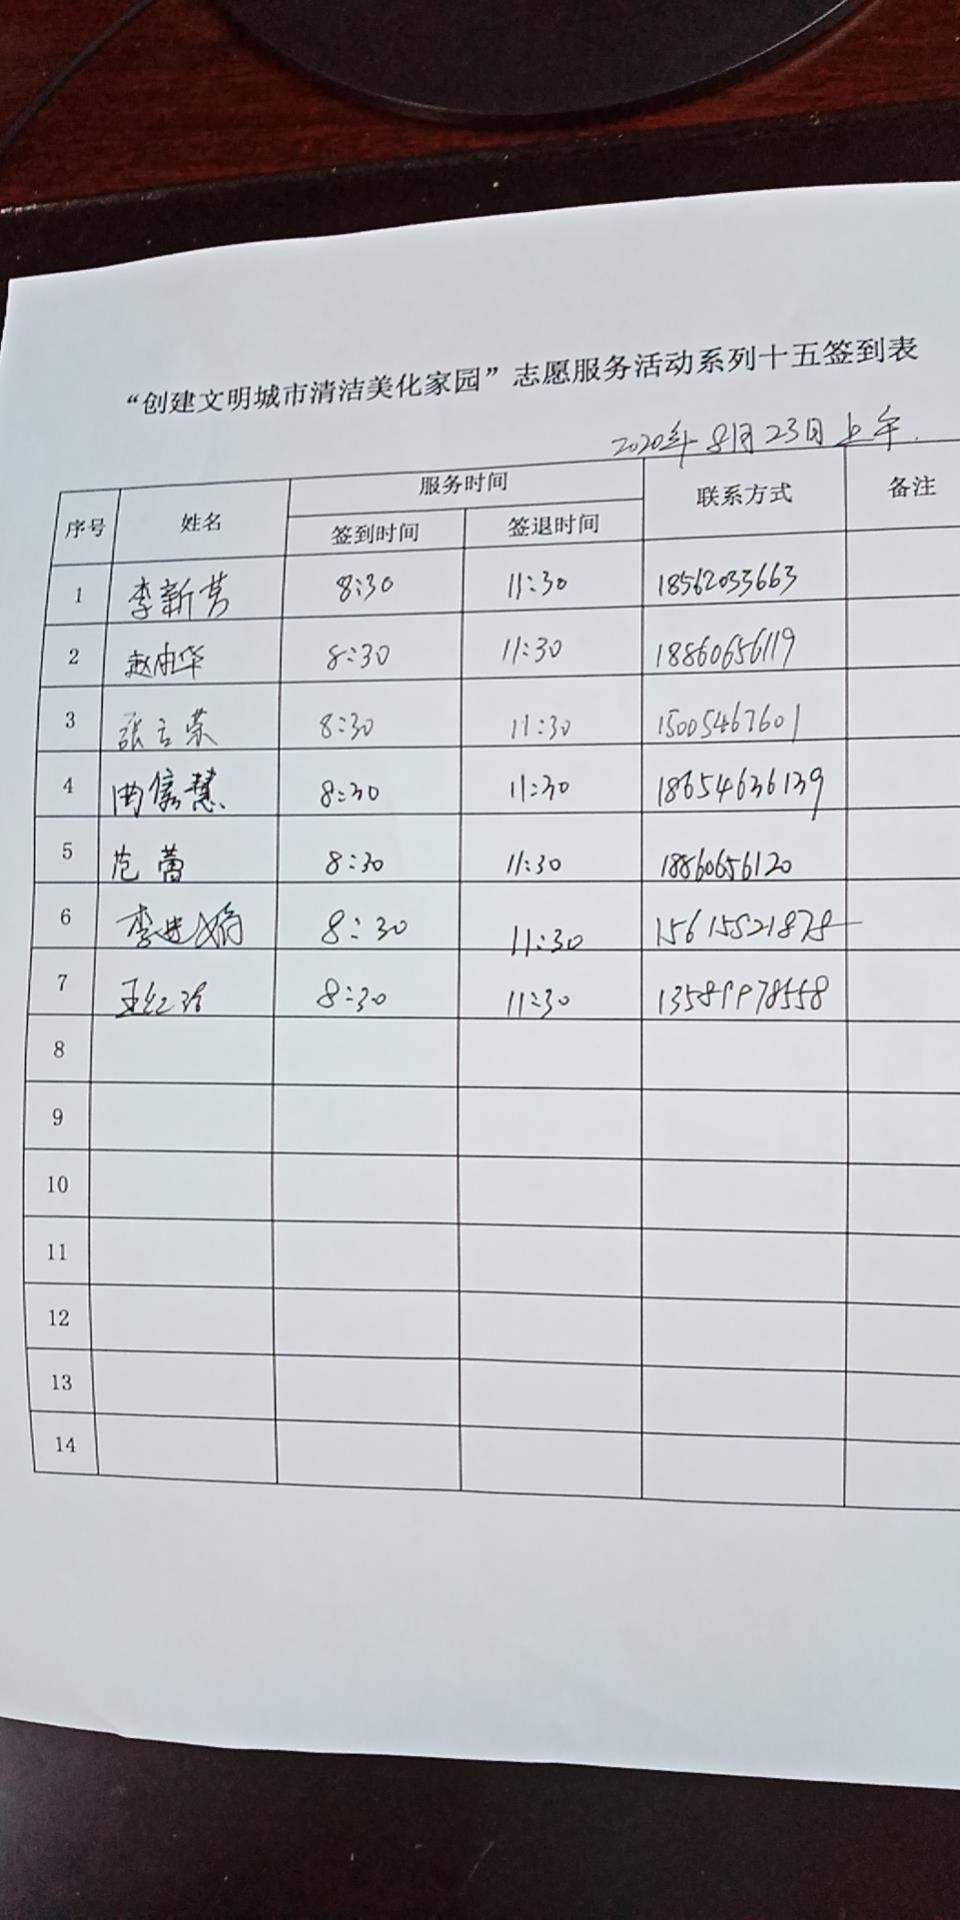 “创建文明城市清洁美化家园”志愿服务活动系列十五签到表
2020年8月23日上午.
序号 姓名 服务时间 联系方式 备注
签到时间 签退时间
1 李新芳 8:30 11:30 18562033663
2 赵由华 8:30 11:30 18860656119
3 张立荣 8:30 11:30 15005467601
4 曲信慧 8:30 11:30 18654636139
5 范蕾 8:30 11:30 18860656120
6 8:30 11:30 15615521878
7 8:30 11:30 13589978558
8
9
10
11
12
13
14